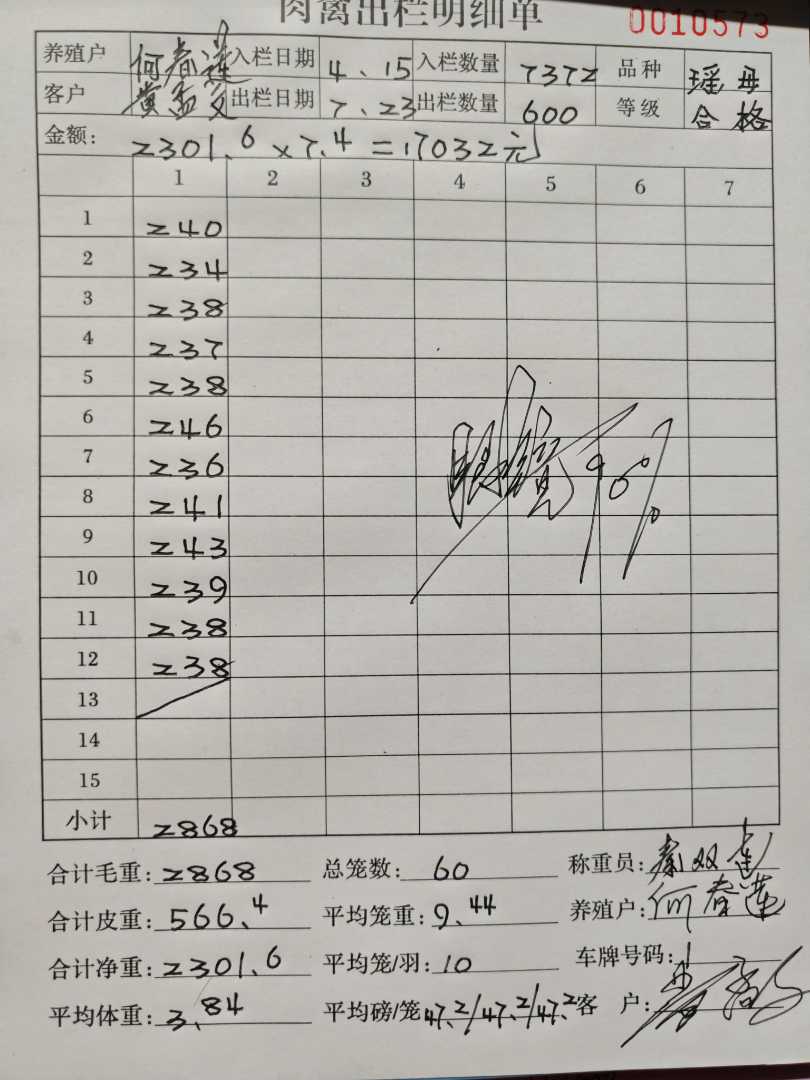 肉禽出栏明细单 0010573
养殖户 何春莲 入栏日期 4、15 入栏数量 7372 品种 瑶母
客户 黄孟 出栏日期 7、23 出栏数量 600 等级 合格
金额: 2301.6×7.4=17032元
1 2 3 4 5 6 7
1 240
2 234
3 238
4 237
5 238
6 246
7 236
8 241
9 243
10 239
11 238
12 238
13
14
15
90%
小计 2868
合计毛重: 2868 总笼数: 60 称重员: 秦双莲
合计皮重: 566.4 平均笼重: 9.44 养殖户: 何春莲
合计净重: 2301.6 平均笼/羽: 10 车牌号码:
平均体重: 3.84 平均磅/笼 47.2/47.2/47.2 客户: